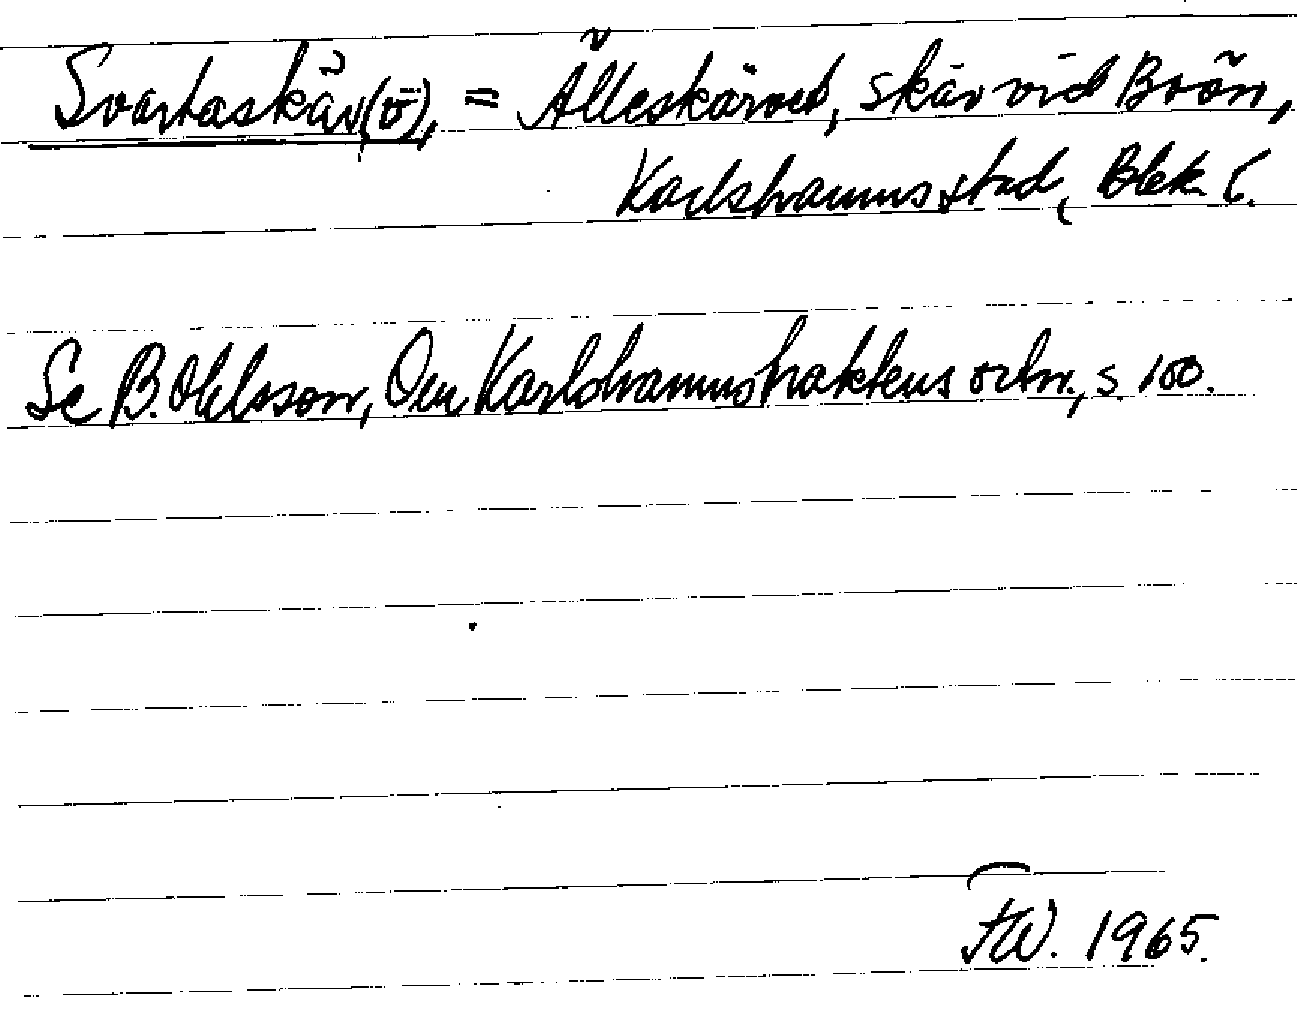 Svartaskär(ō), = Älleskäret, skär vid Boön,
Karlshamns stad, Blek. l.
Se B. Ohlsson, Om Karlshamnstraktens ortn., s. 100.
FW. 1965.